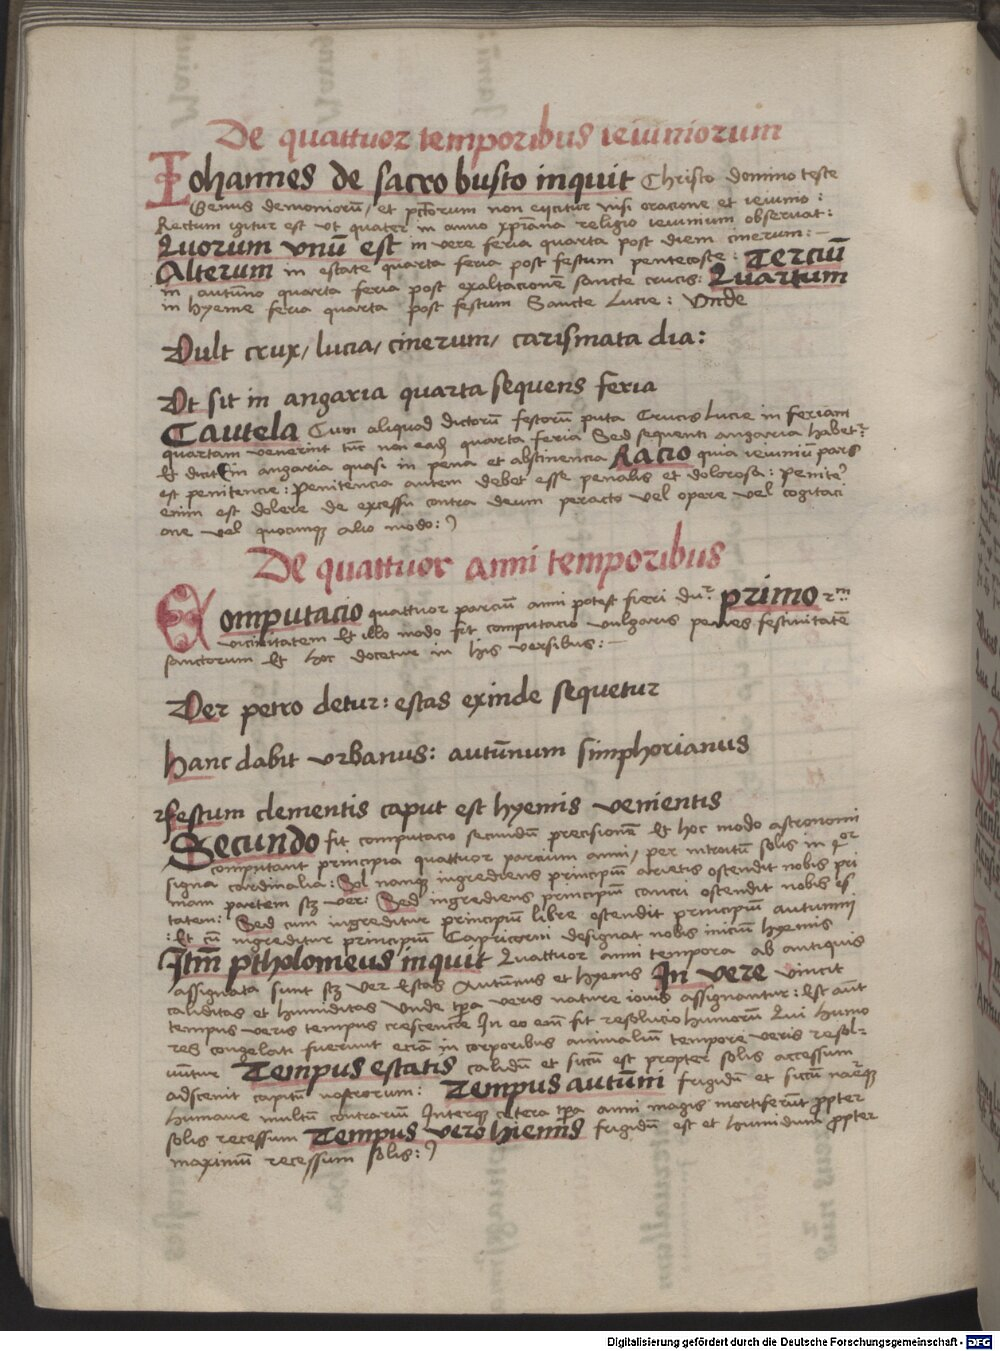 De quattuor temporibus ieiuniorum
Iohannes de sacro busto inquit Christo domino teste
Genus demoniorū, et pctorum non eijcitur nisi oracione et ieiunio:
Rectum igitur est ut quater in anno xpiana religio ieiunium observat:
Quorum unū est in vere feria quarta post diem cinerum:
Alterum in estate quarta feria post festum pentecoste: Terciū
in autūno quarta feria post exaltacionē sancte crucis: Quartum
in hyeme feria quarta post festum Sancte Lucie: Unde
Vult crux, lucia, cinerum, carismata dia:
Ut sit in angaria quarta sequens feria
Cautela Cum aliquod dictorū festorū puta Crucis Lucie in feriam
quartam venerint tūc non eadē quarta feria Sed sequenti angaria habetr
Et dicit in angaria quasi in pena et abstinencia Racio quia ieiuniū pars
est penitencie: Penitencia autem debet esse penalis et dolorosa: Penite
enim est dolere de excessu contra deum peracto vel opere vel cogitaci
one vel quocunqz alio modo:
De quattuor anni temporibus
Computacio quattuor parciū anni potest fieri dur primo
vicinitatem Et illo modo fit computacio vulgaris penes festivitatē
sanctorum Et hoc docetur in his versibus:
Ver petro detur: estas exinde sequetur
Hanc dabit urbanus: autūnum simphorianus
Festum clementis caput est hyemis venientis
Secundo fit computacio secundū precisionē Et hoc modo astronomi
computant principia quattuor parcium anni, per introitū solis in 4or
signa cardinalia: Sol nanqz ingrediens principiū arietis ostendit nobis pri
mam partem scz ver: Sed ingrediens principiū cancri ostendit nobis es
tatem: Sed cum ingreditur principiū libre ostendit principiū autumni
: Et cū ingreditur principiū Capricorni designat nobis inicium hyemis
Itm ptholomeus inquit Quattuor anni tempora ab antiquis
assignata sunt scz ver Estas Autūnus et hyems In vere vincit
caliditas et humiditas Unde tpa veris nature iovis assignantur: Est aūt
tempus veris tempus crescencie In eo enī fit resolucio humorū Qui humo
res congelati fuerunt eciā in corporibus animaliū tempore veris resol-
vūtur Tempus estatis calidū et siccū est propter solis accessum
adscenit capitū nostrorum: Tempus autūni frigidū et siccū
humane multū contrariū Interqz cetera tpa anni magis mortiferūt propter
solis recessum Tempus vero hiemis frigidū est et humidum propter
maximū recessum solis:
Digitalisierung gefördert durch die Deutsche Forschungsgemeinschaft - DFG